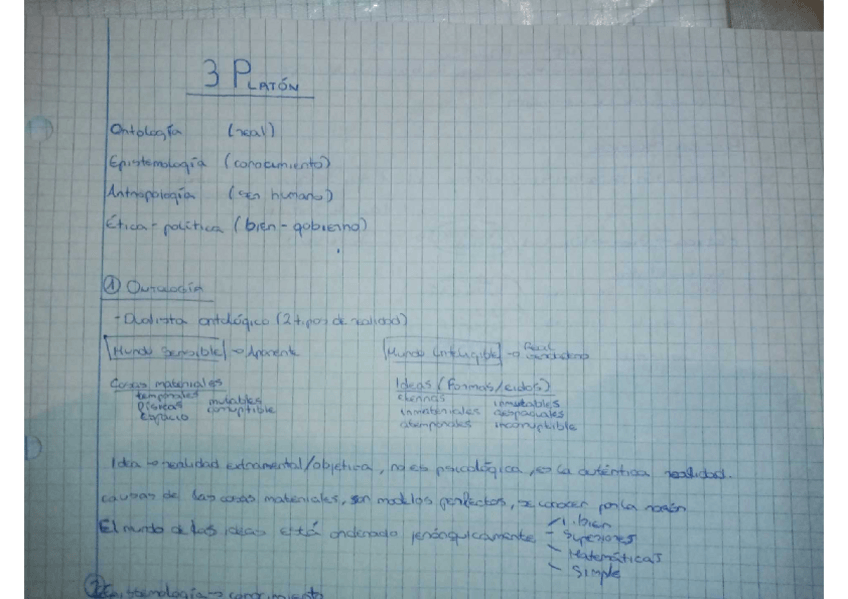 3 PLATÓN
Ontología (real)
Epistemología (conocimiento)
Antropología (ser humano)
Ética - política (bien - gobierno)
① Ontología
- Dualista ontológico (2 tipos de realidad)
Mundo Sensible → Aparente Mundo Inteligible → Real verdadero
Cosas materiales Ideas (Formas/eidos)
temporales mutables eternas inmutables
físicas corruptible inmateriales aespaciales
espacio atemporales incorruptible
Idea → realidad extramental/objetiva, no es psicológica, es la auténtica realidad.
causas de las cosas materiales, son modelos perfectos, se conocen por la razón
El mundo de las ideas está ordenado jerárquicamente
1. bien
- Superiores
- Matemáticas
- Simple
② Epistemología → conocimiento